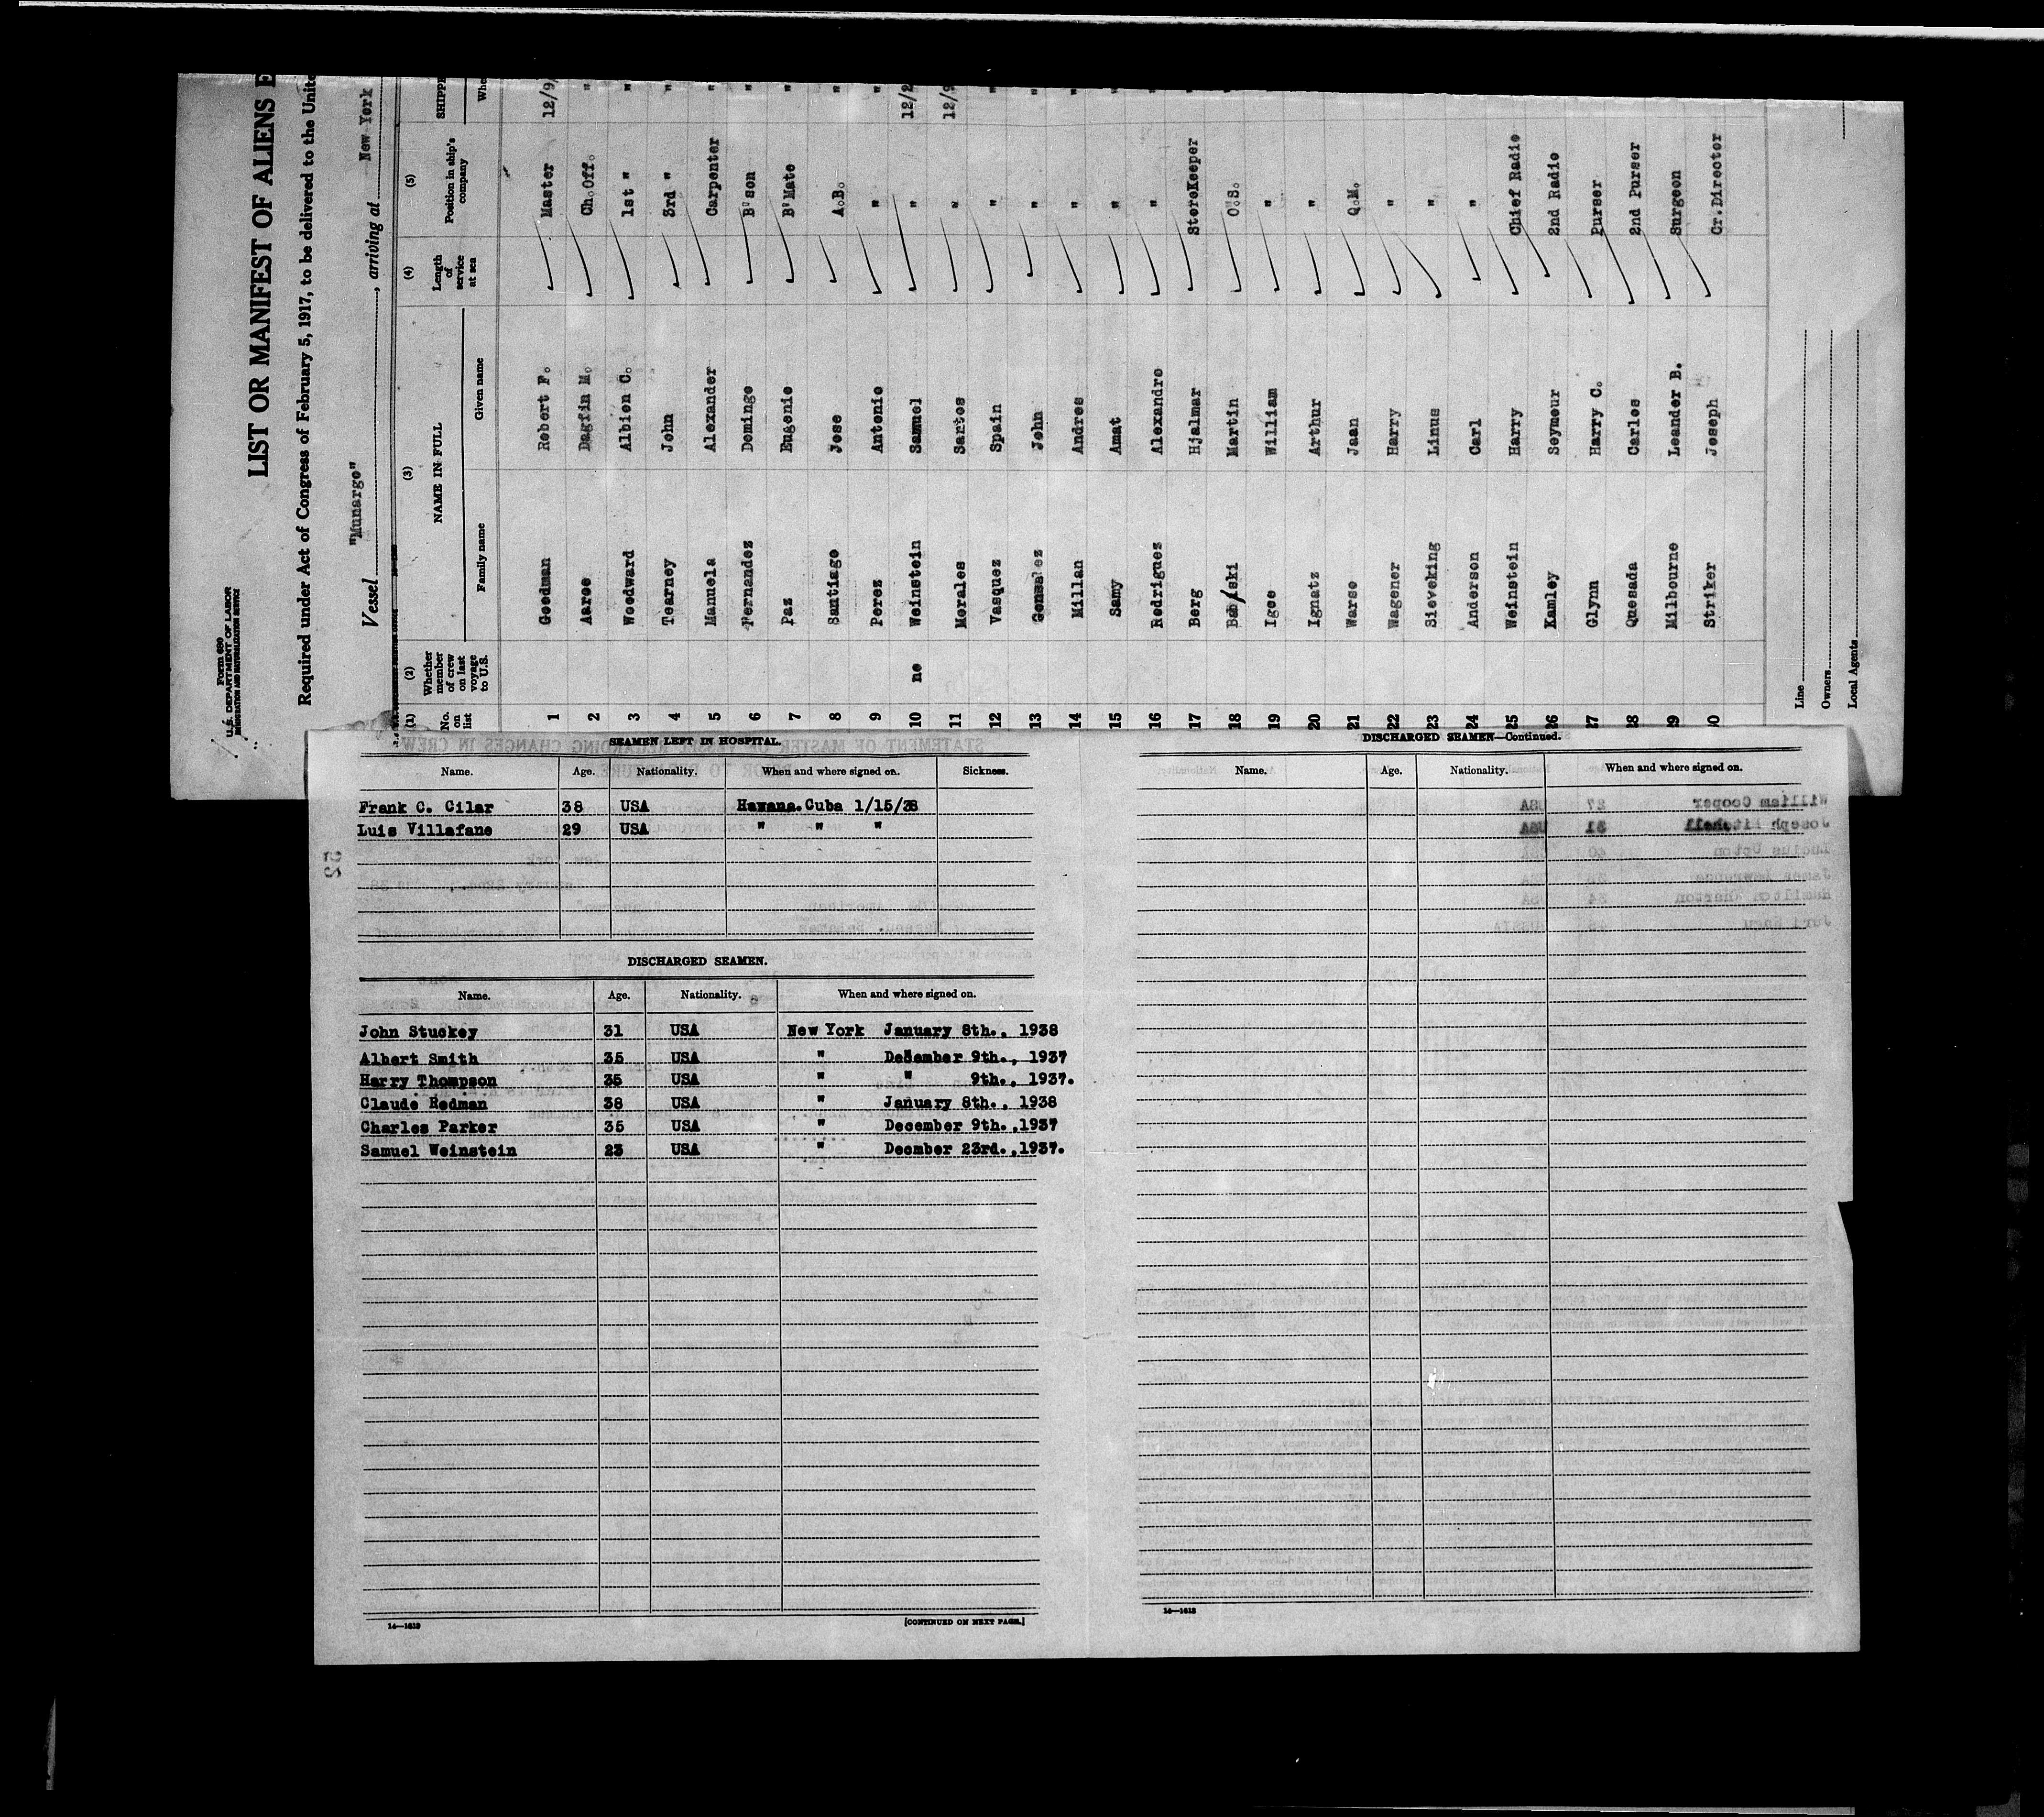 Form 680
U.S. DEPARTMENT OF LABOR
IMMIGRATION AND NATURALIZATION SERVICE
LIST OR MANIFEST OF ALIENS E
Required under Act of Congress of February 5, 1917, to be delivered to the Unite
Vessel "Munargo", arriving at New York
(1) (2) (3) (4) (5)
No. on list Whether member of crew on last voyage to U.S. NAME IN FULL Length of service at sea Position in ship's company SHIPPE
Family name Given name Whe
1 Goodman Robert F. Master 12/9/
2 Aaroe Dagfin M. Ch.Off. "
3 Woodward Albion C. 1st " "
4 Tearney John 3rd " "
5 Manuela Alexander Carpenter "
6 Fernandez Domingo B'son "
7 Paz Eugenio B'Mate "
8 Santiago Jose A.B. "
9 Perez Antonio " "
10 no Weinstein Samuel " 12/2
11 Morales Santos " 12/9
12 Vasquez Spain " "
13 Gonzalez John " "
14 Millan Andres " "
15 Samy Amat " "
16 Rodriguez Alexandro " "
17 Berg Hjalmar StoreKeeper "
18 Martin O.S.
19 Igoe William "
20 Ignatz Arthur "
21 Warse Jaan Q.M.
22 Wagener Harry "
23 Sieveking Linus "
24 Anderson Carl "
25 Weinstein Harry Chief Radio
26 Kamley Seymour 2nd Radio
27 Glynn Harry C. Purser
28 Quesada Carlos 2nd Purser
29 Milbourne Leander B. Surgeon
30 Striker Joseph Cr.Director
Line
Owners
Local Agents
SEAMEN LEFT IN HOSPITAL.
Name. Age. Nationality. When and where signed on. Sickness.
Frank C. Cilar 38 USA Havana.Cuba 1/15/38
Luis Villafane 29 USA " " "
DISCHARGED SEAMEN.
Name. Age. Nationality. When and where signed on.
John Stuckey 31 USA New York January 8th., 1938
Albert Smith 35 USA " December 9th., 1937
Harry Thompson 35 USA " " 9th., 1937.
Claude Redman 38 USA " January 8th., 1938
Charles Parker 35 USA " December 9th.,1937
Samuel Weinstein 23 USA " December 23rd.,1937.
14—1613
[CONTINUED ON NEXT PAGE.]
DISCHARGED SEAMEN—Continued.
Name. Age. Nationality. When and where signed on.
14—1613